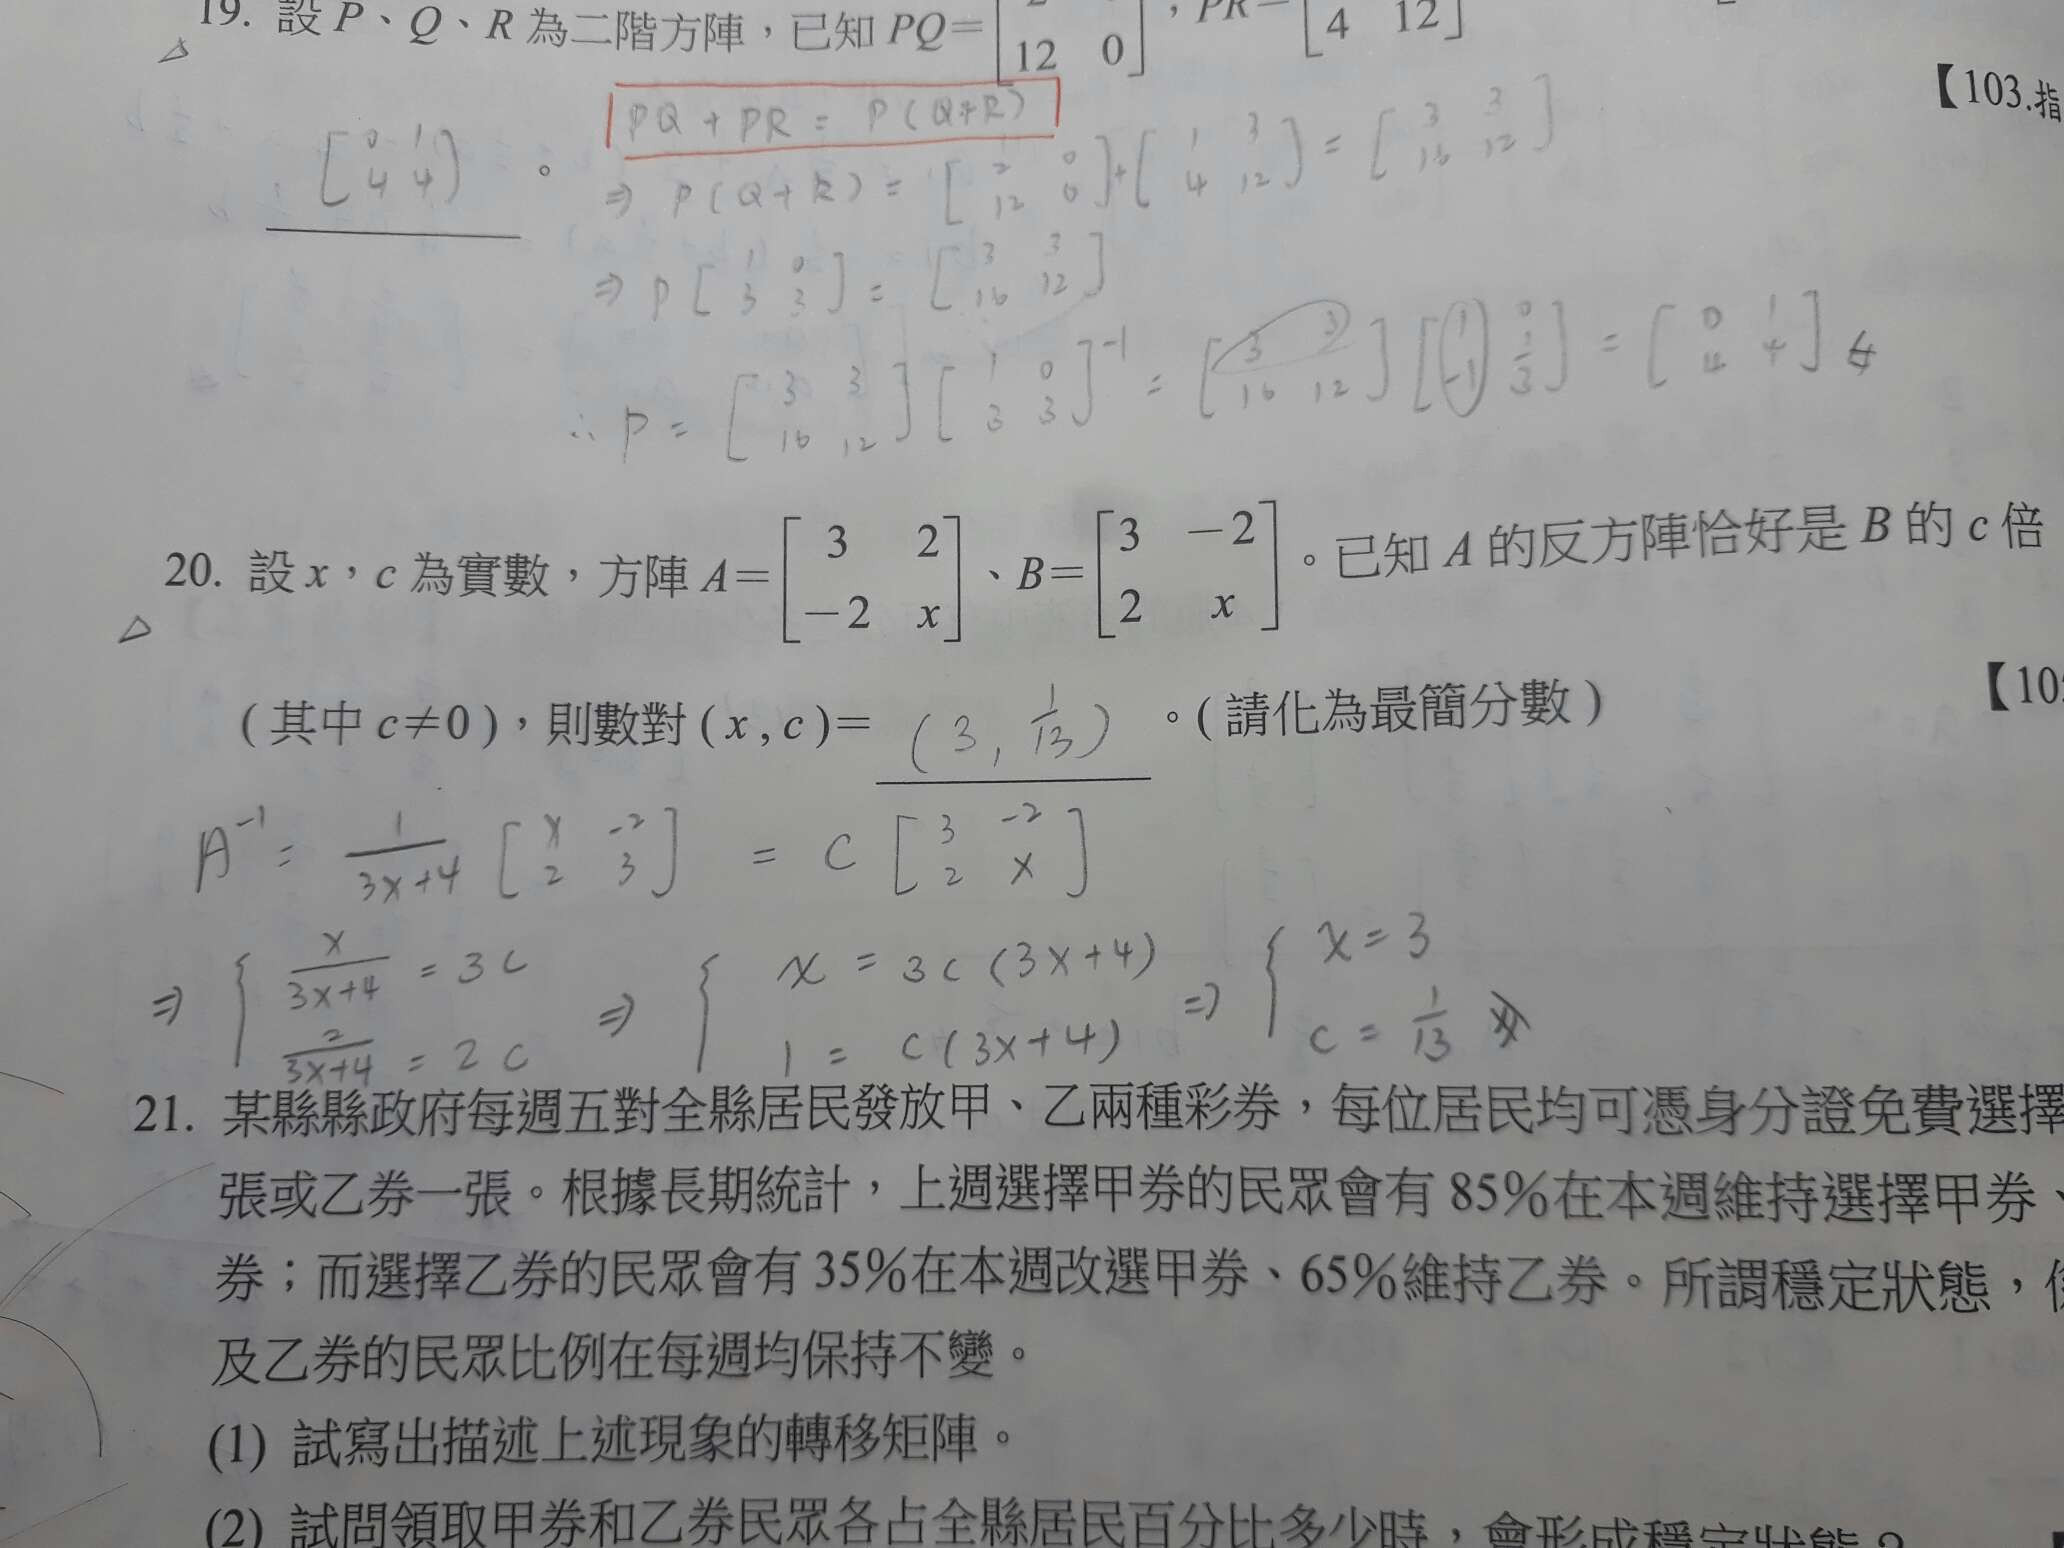 19. 設 P、Q、R 為二階方陣，已知 PQ=[ 12 0 ]，PR=[ 4 12 ]
【103.指
PQ + PR = P(Q+R)
[0 1; 4 4] 。
⇒ P(Q+R) = [2 0; 12 0] + [1 3; 4 12] = [3 3; 16 12]
⇒ P[1 0; 3 3] = [3 3; 16 12]
∴ P = [3 3; 16 12][1 0; 3 3]^-1 = [3 3; 16 12][1 0; -1 1/3] = [0 1; 4 4]
20. 設 x，c 為實數，方陣 A=[3 2; -2 x]、B=[3 -2; 2 x]。已知 A 的反方陣恰好是 B 的 c 倍
(其中 c≠0)，則數對 (x,c)= (3, 1/13) 。(請化為最簡分數)
【10
A^-1 = 1/(3x+4) [x -2; 2 3] = c [3 -2; 2 x]
⇒ { x/(3x+4) = 3c ⇒ { x = 3c(3x+4) ⇒ { x = 3
2/(3x+4) = 2c 1 = c(3x+4) c = 1/13
21. 某縣縣政府每週五對全縣居民發放甲、乙兩種彩券，每位居民均可憑身分證免費選擇
張或乙券一張。根據長期統計，上週選擇甲券的民眾會有 85%在本週維持選擇甲券、
券；而選擇乙券的民眾會有 35%在本週改選甲券、65%維持乙券。所謂穩定狀態，
及乙券的民眾比例在每週均保持不變。
(1) 試寫出描述上述現象的轉移矩陣。
(2) 試問領取甲券和乙券民眾各占全縣居民百分比多少時，會形成穩定狀態？